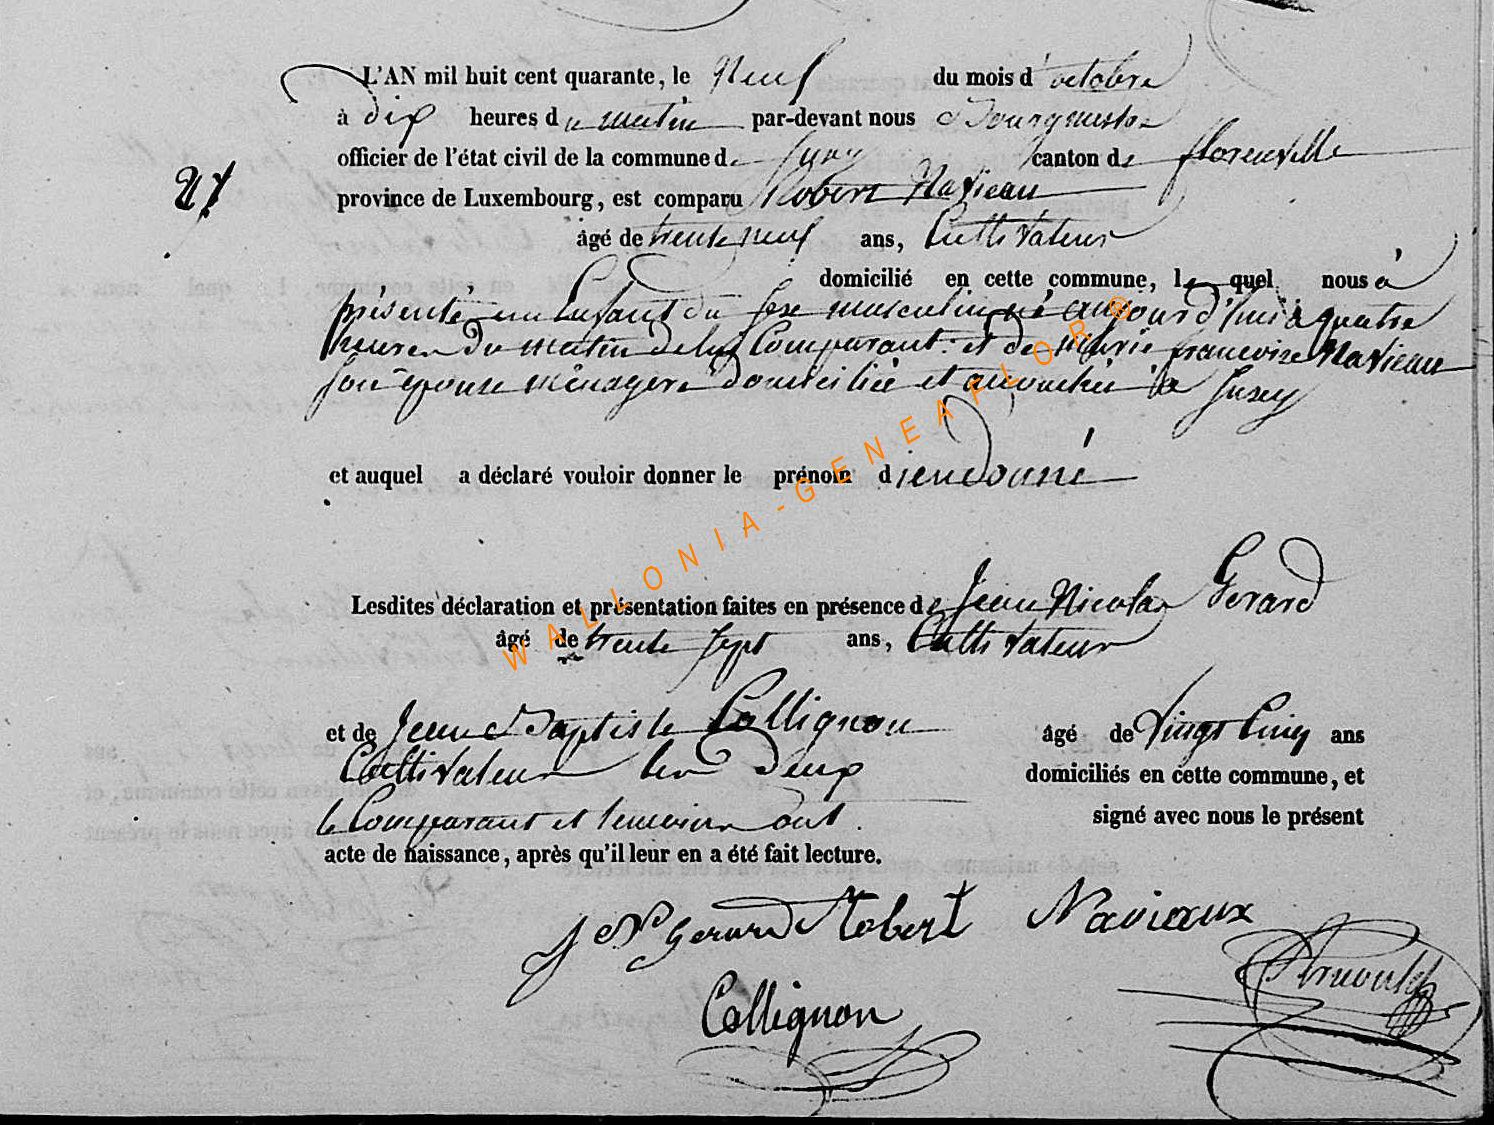 L'AN mil huit cent quarante, le Neuf du mois d'octobre
à dix heures du matin par-devant nous Bourgmestre
27 officier de l'état civil de la commune de Jusey canton de florenville
province de Luxembourg, est comparu Robert Navieau
âgé de trente neuf ans, Cultivateur
domicilié en cette commune, lequel nous à
présenté un Enfant du sexe masculin né aujourd'hui à quatre
heures du matin de lui Comparant et de Marie francoise Navieau
son épouse ménagere domiciliée et accouchée à Jusey
et auquel a déclaré vouloir donner le prénom dieudonné
Lesdites déclaration et présentation faites en présence de Jean Nicolas Gerard
âgé de trente sept ans, Cultivateur
et de Jean Baptiste Collignon âgé de Vingt Cinq ans
Cultivateur les deux domiciliés en cette commune, et
le Comparant et temoins ont signé avec nous le présent
acte de naissance, après qu'il leur en a été fait lecture.
J N Gerard Robert Navieaux
Collignon
WALLONIA-GENEAFLOR®